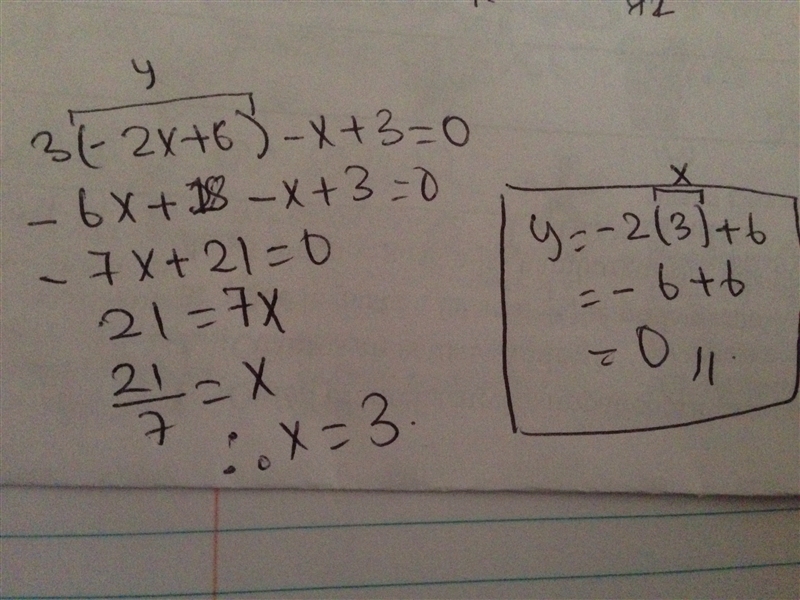 y
3(-2x+6)-x+3=0
-6x+18-x+3=0
-7x+21=0
21=7x
21/7=x
∴x=3.
x
y=-2(3)+6
=-6+6
=0 //.